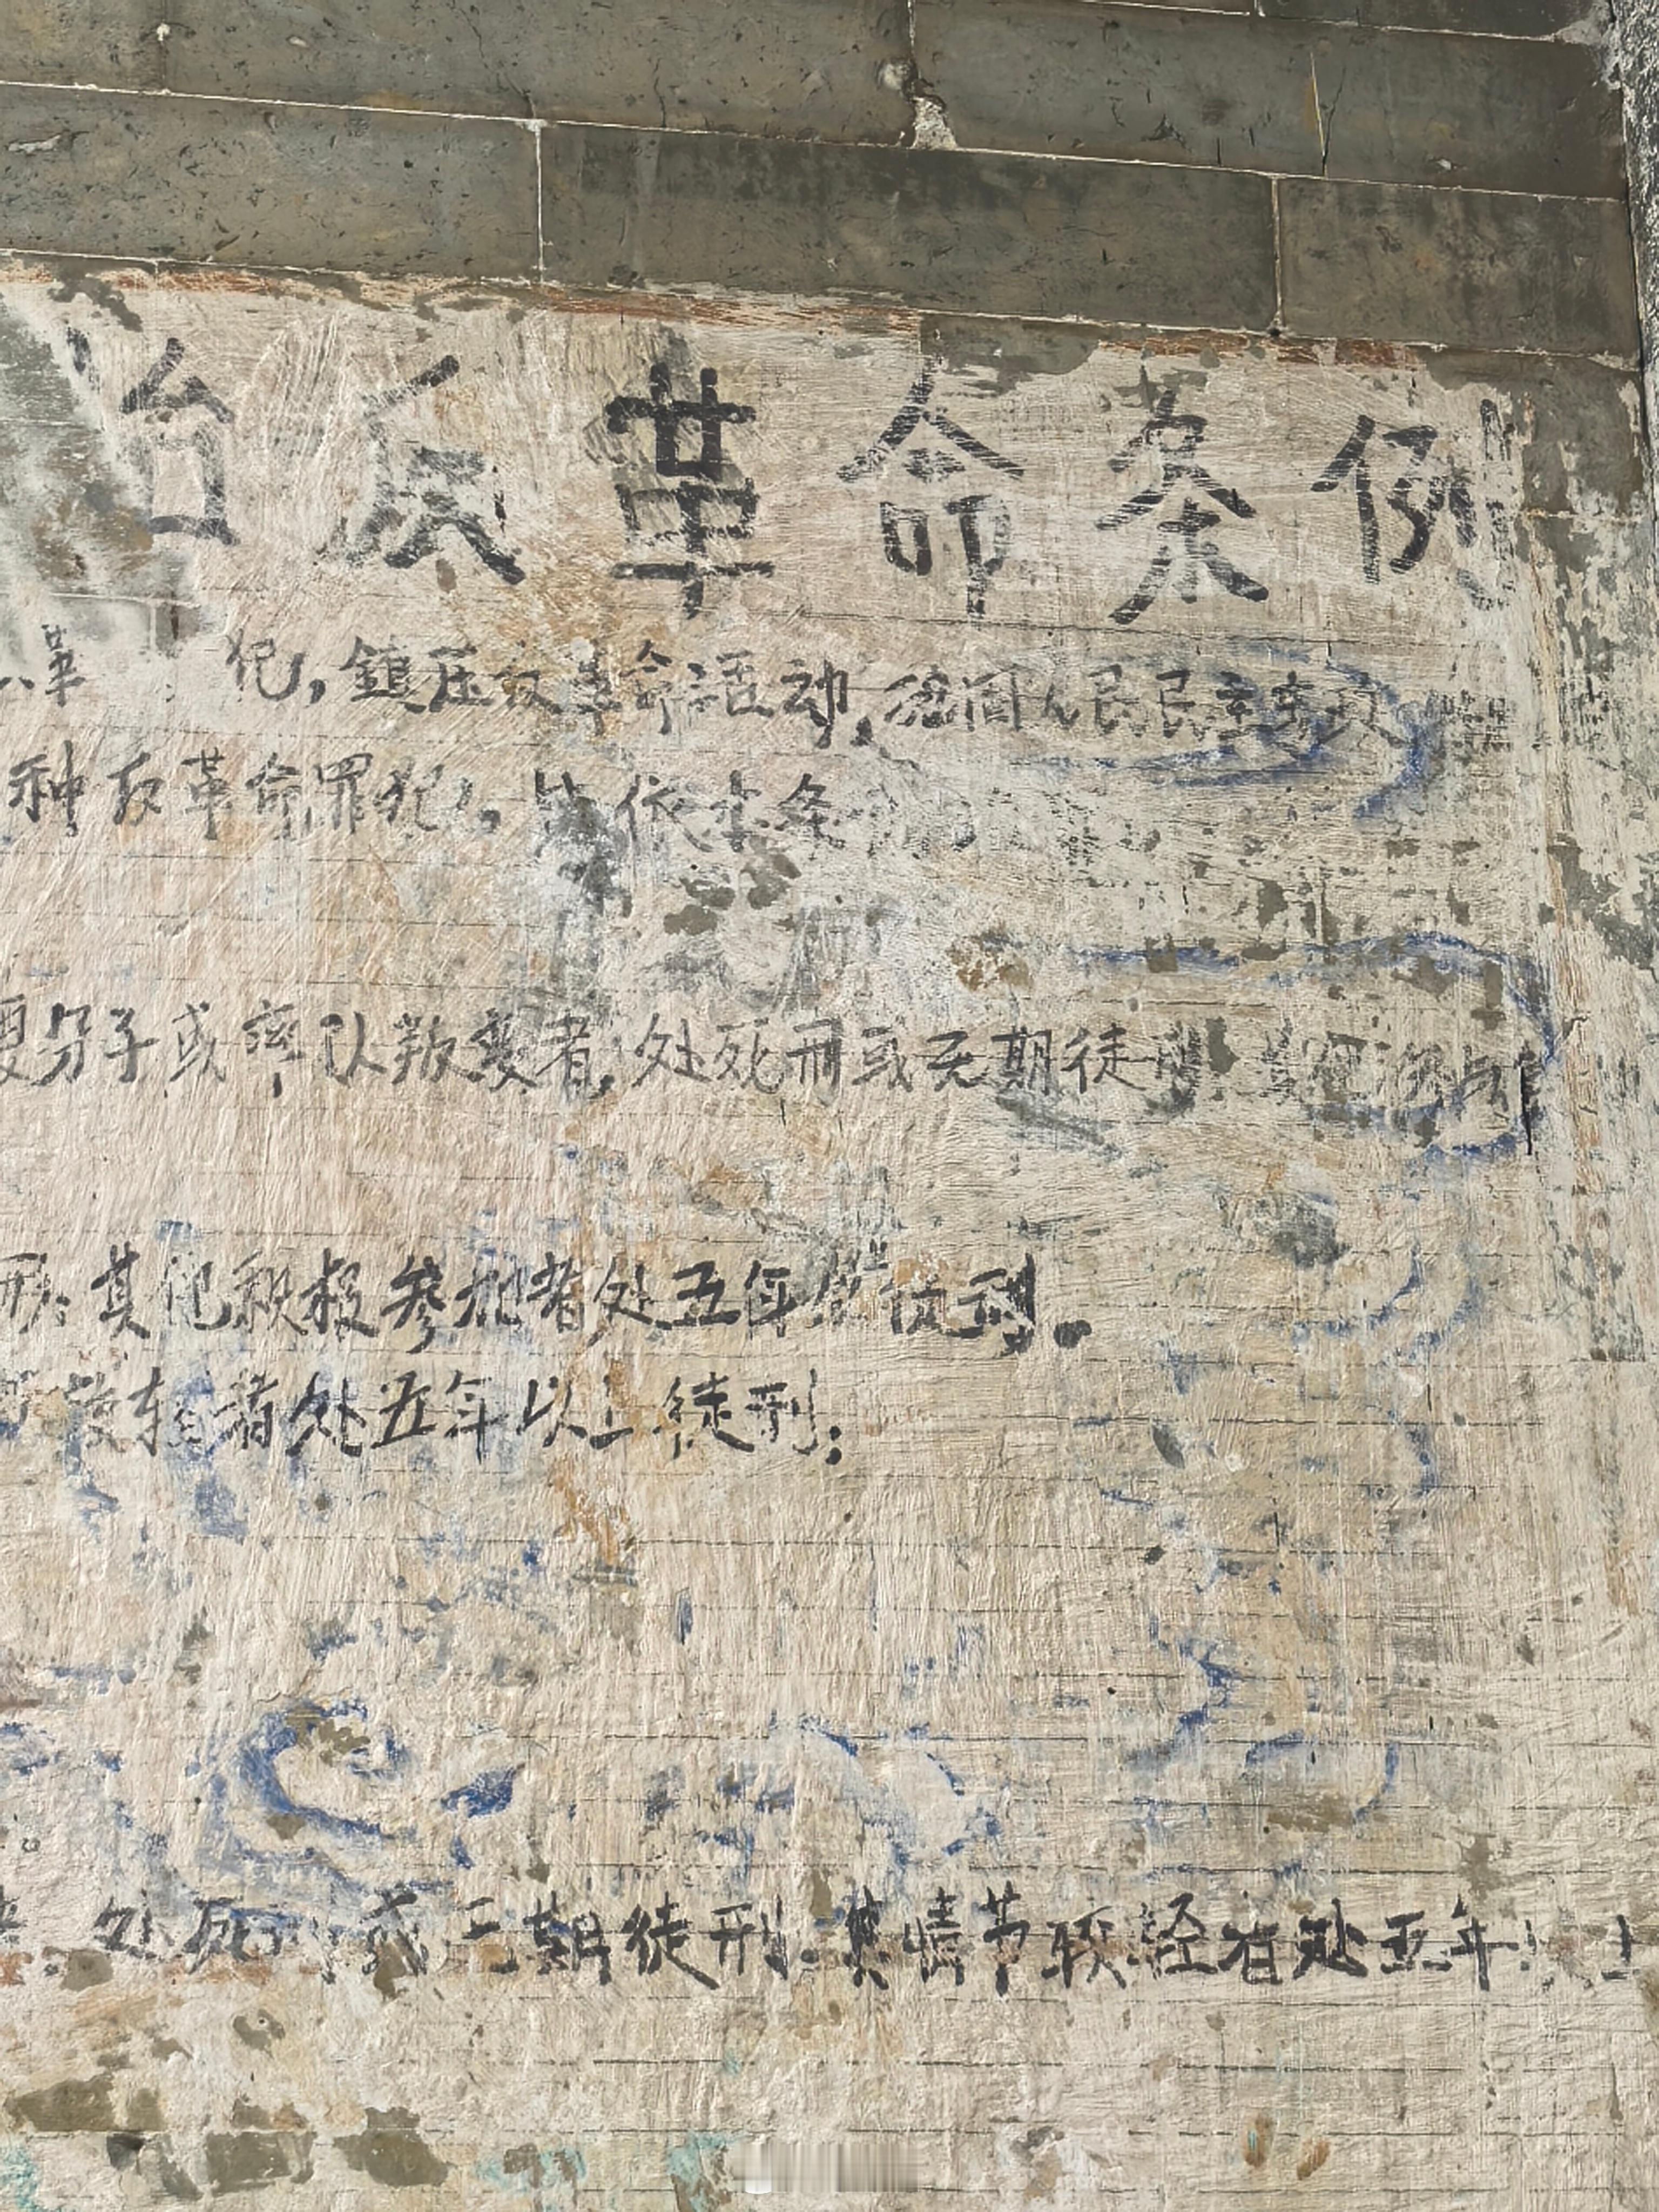 治反革命条例
革 犯,鎮压反革命活动,巩固人民民主专政
种反革命罪犯,皆依本条
要分子或率队叛变者,处死刑或无期徒刑
刑;其他积极参加者处五年以下徒刑。
较轻者处五年以上徒刑;
处死刑或无期徒刑;其情节较轻者处五年以上